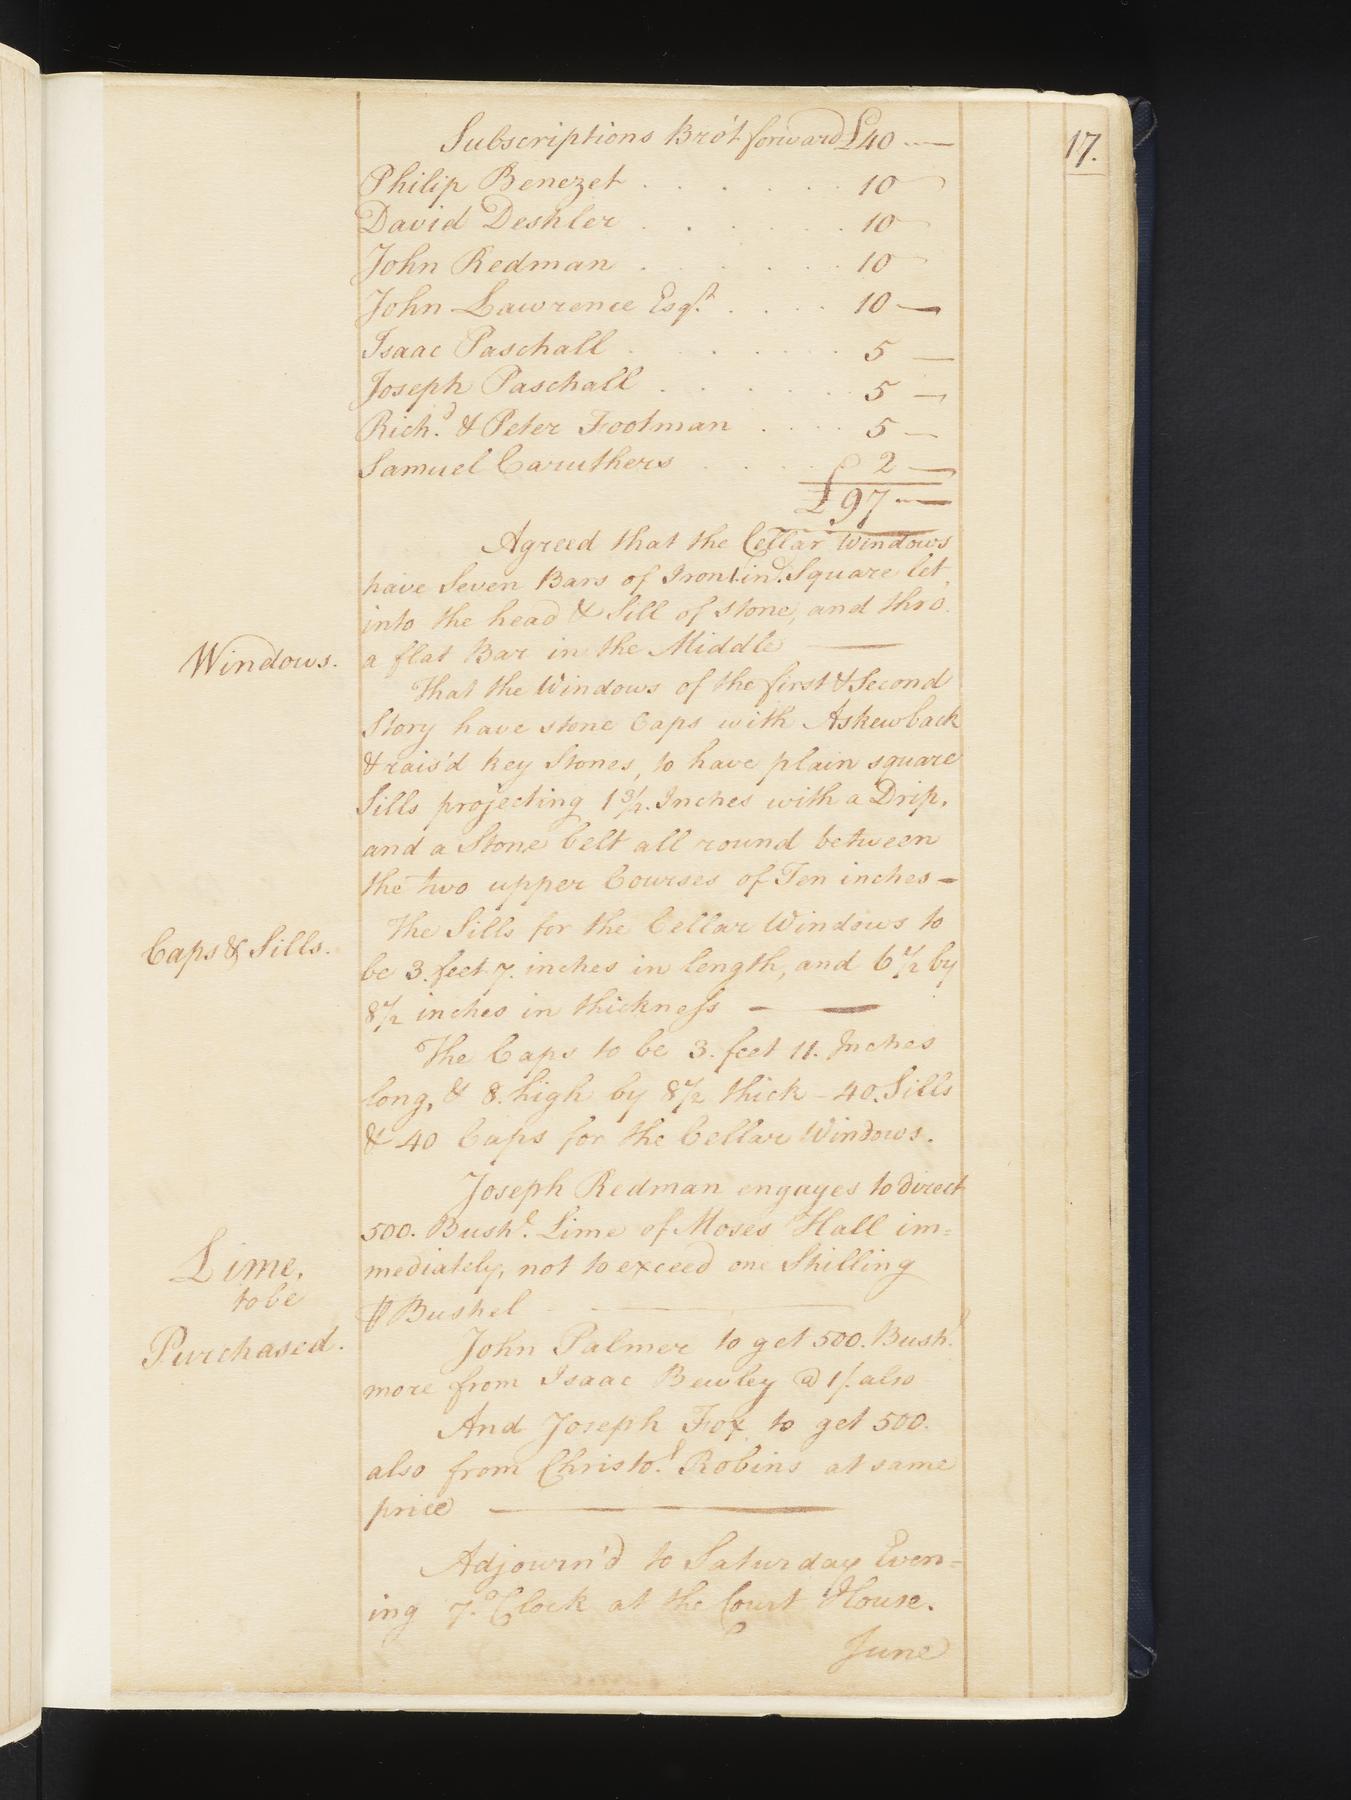 17.
Subscriptions Bro't forward £40 —
Philip Benezet . . . . . . 10
David Deshler . . . . . . 10
John Redman . . . . . . 10
John Lawrence Esqr. . . . . 10 —
Isaac Paschall . . . . . . 5 —
Joseph Paschall . . . . . 5 —
Richd. & Peter Footman . . . . 5 —
Samuel Caruthers . . . . 2 —
£97 —
Agreed that the Cellar Windows
have Seven Bars of Iron 1. ind. Square let
into the head & Sill of stone, and thro.
Windows.
a flat Bar in the Middle —
That the Windows of the first & Second
Story have stone Caps with Askewback
& rais'd key Stones, to have plain square
Sills projecting 1 3/4. Inches with a Drip,
and a Stone belt all round between
the two upper Courses of Ten inches —
The Sills for the Cellar Windows to
Caps & Sills.
be 3. feet 7. inches in length, and 6 1/2 by
8 1/2 inches in thickness — —
The Caps to be 3. feet 11. Inches
long, & 8. high by 8 1/2 thick – 40. Sills
& 40 Caps for the Cellar Windows.
Joseph Redman engages to direct
500. Bushl. Lime of Moses Hall im=
Lime,
mediately, not to exceed one Shilling
to be
⅌ Bushel —
Purchased.
John Palmer to get 500. Bushl.
more from Isaac Bewley @ 1/. also
And Joseph Fox to get 500.
also from Christor. Robins at same
price —
Adjourn'd to Saturday Even=
ing 7. oClock at the Court House.
June